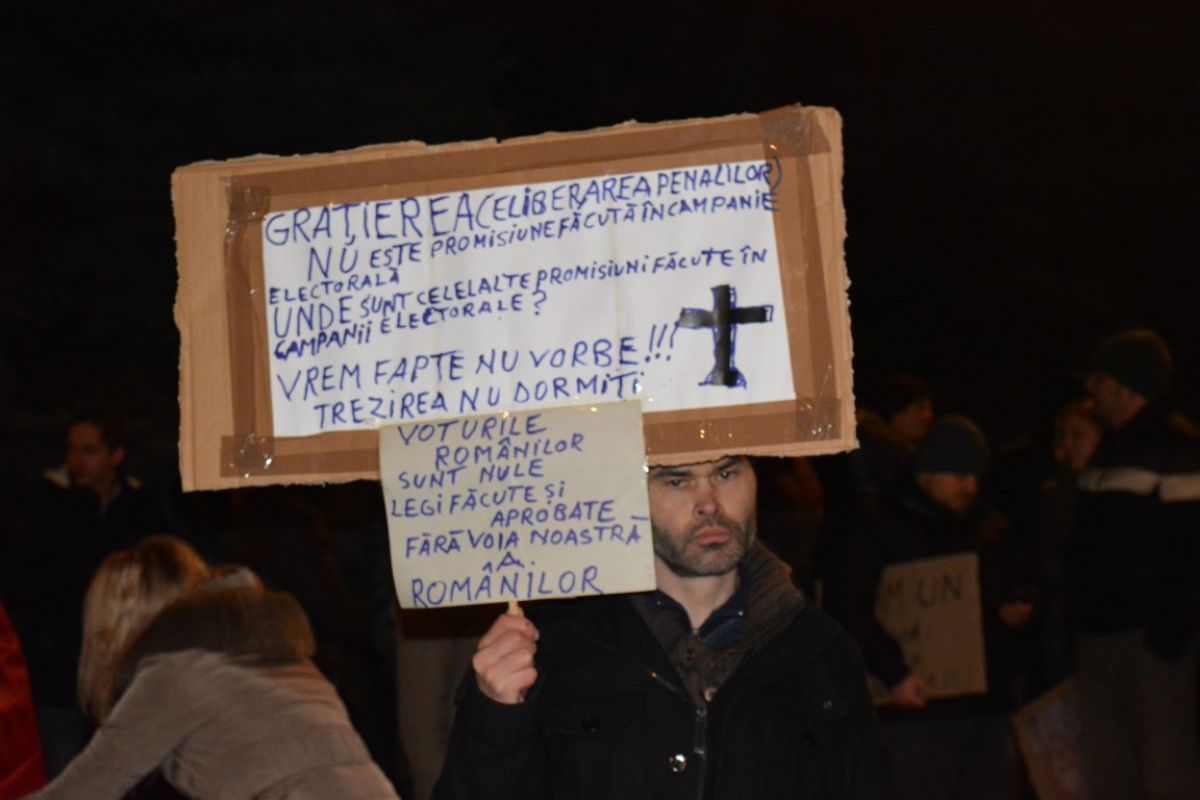 GRAȚIEREA (ELIBERAREA PENALILOR)
NU ESTE PROMISIUNE FĂCUTĂ ÎN CAMPANIE
ELECTORALĂ
UNDE SUNT CELELALTE PROMISIUNI FĂCUTE ÎN
CAMPANII ELECTORALE?
VREM FAPTE NU VORBE!!!
TREZIREA NU DORMIȚI
VOTURILE
ROMÂNILOR
SUNT NULE
LEGI FĂCUTE ȘI
APROBATE -
FĂRĂ VOIA NOASTRĂ
A.
ROMÂNILOR
M UN